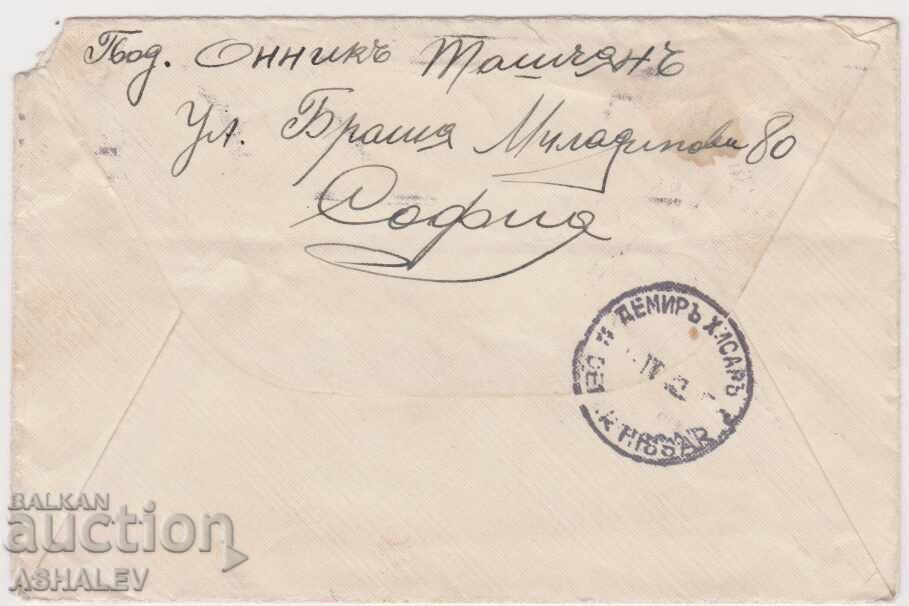 Под. Онникъ Ташчянъ
Ул. Братя Миладинови 80
София
ДЕМИРЪ ХИСАРЪ
HISSAR
BALKAN
auction
ASHALEV